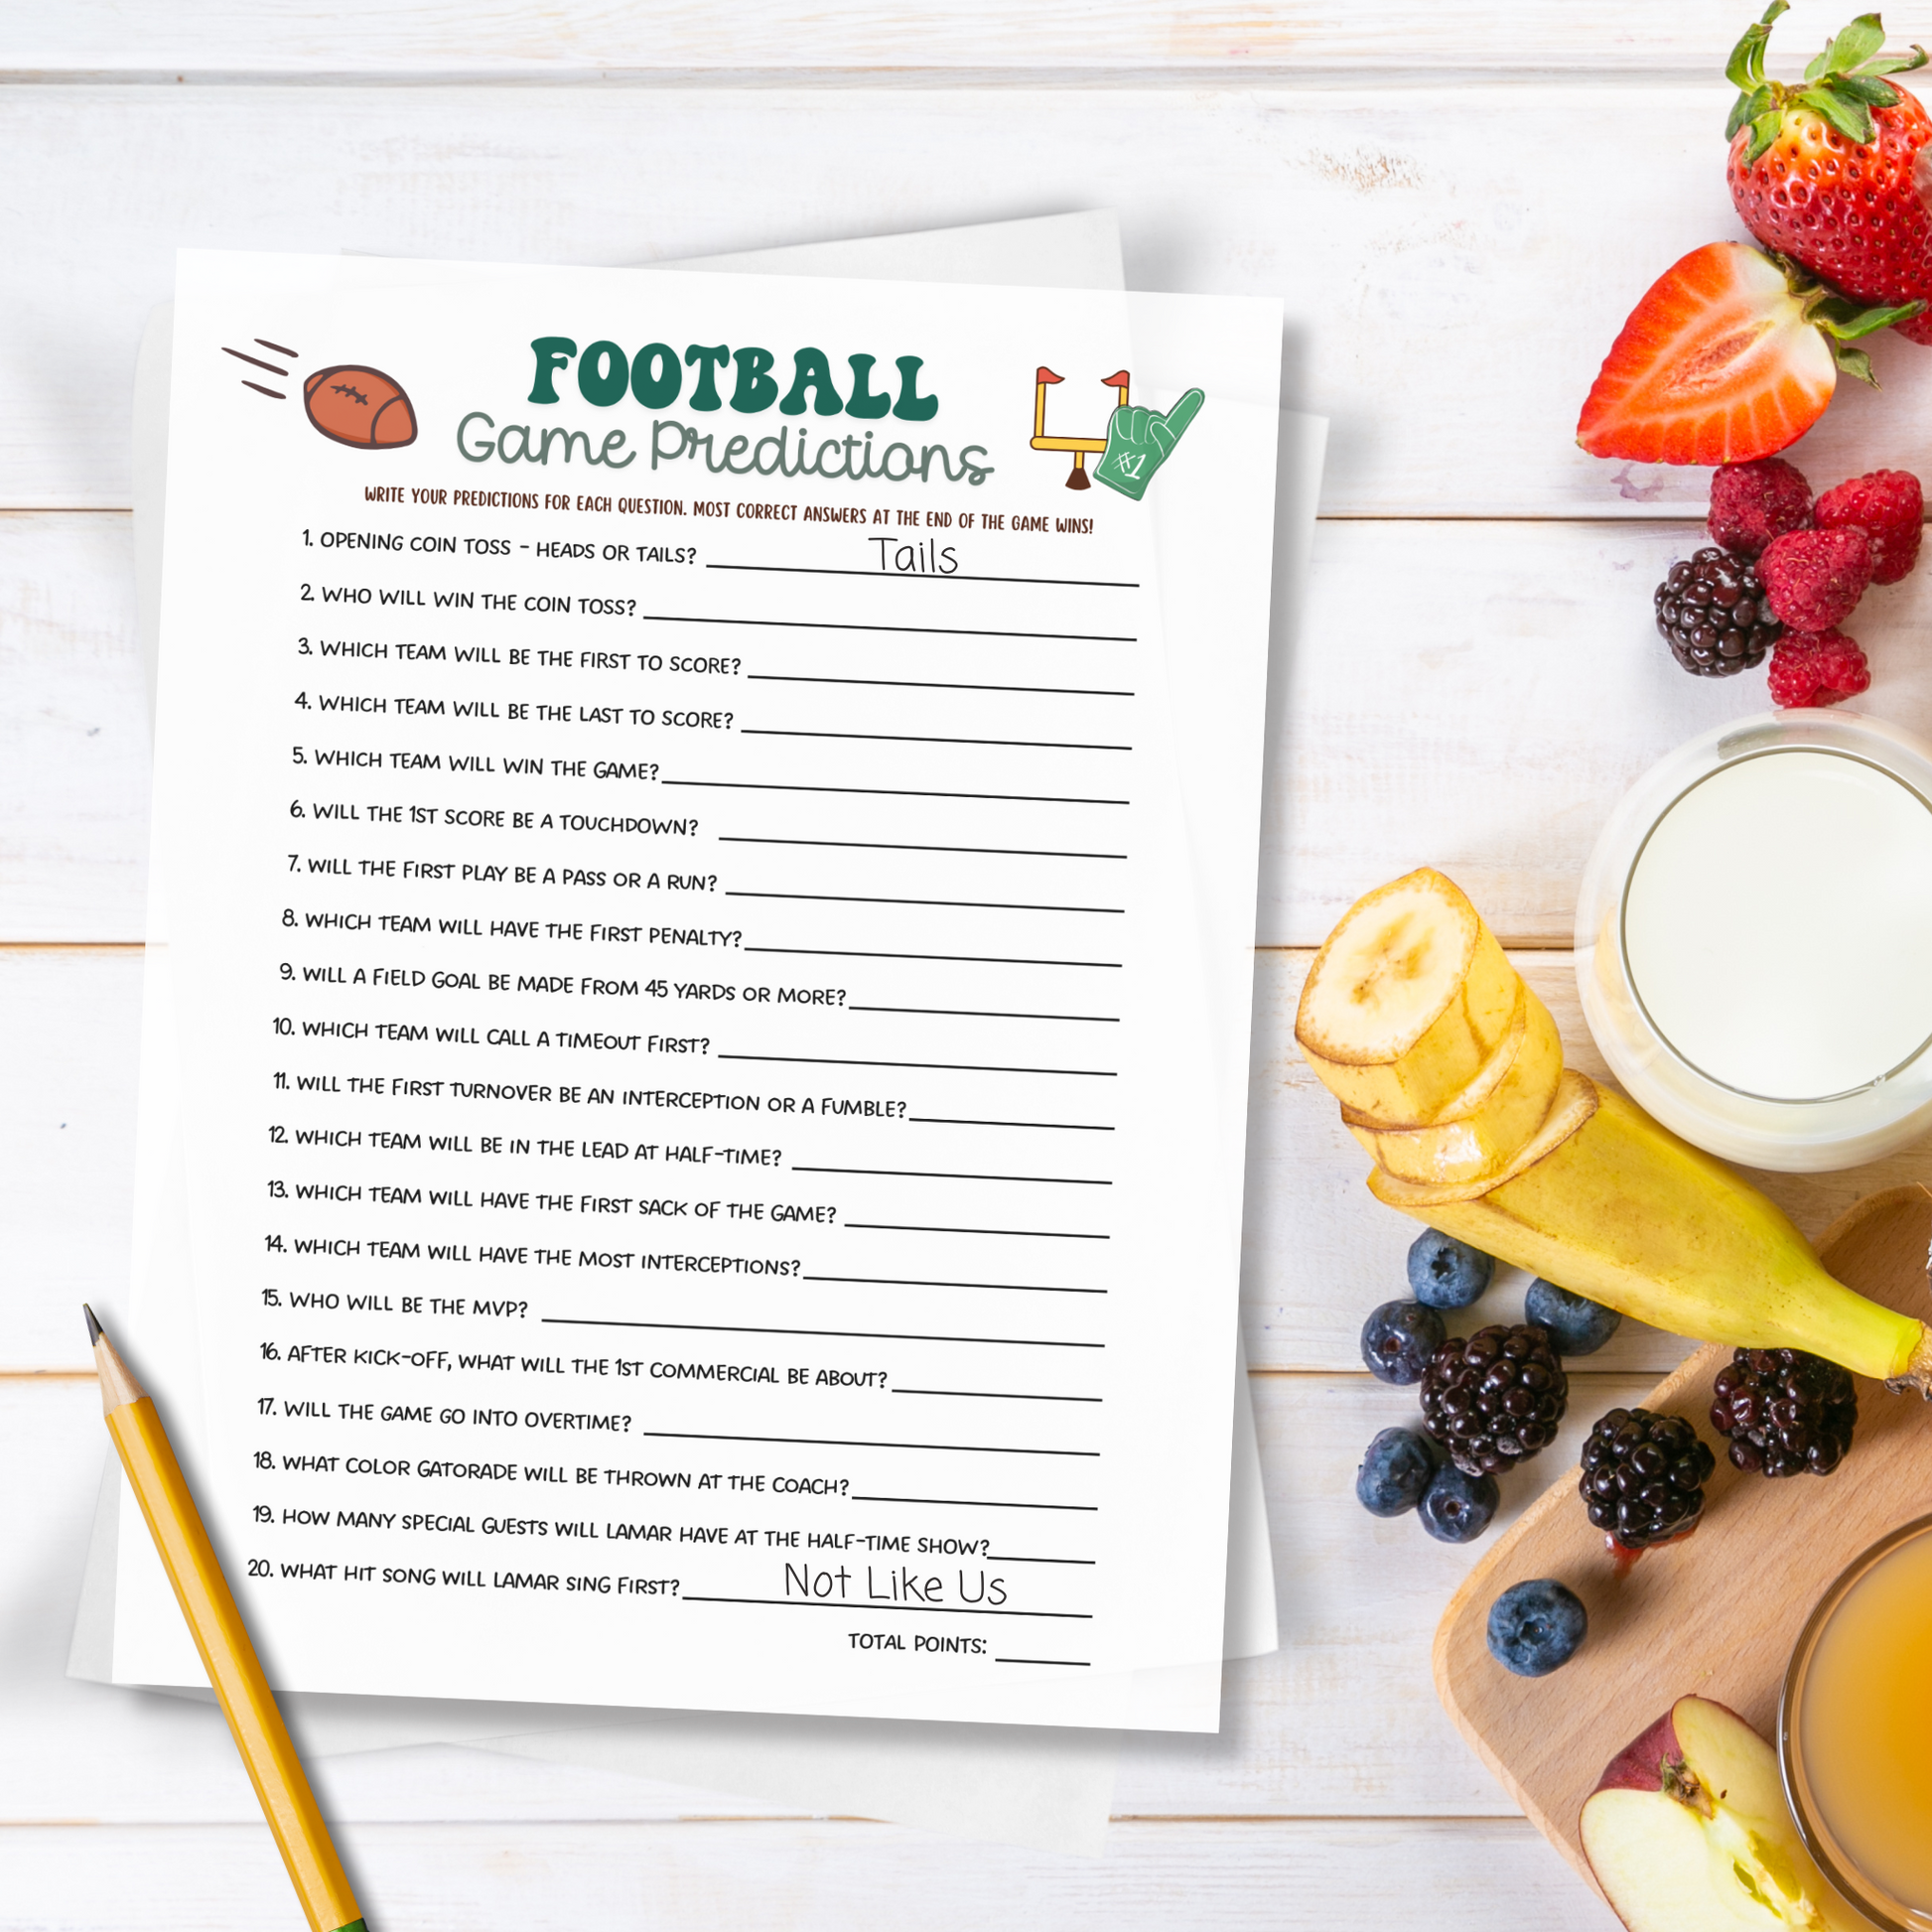 FOOTBALL
Game Predictions
WRITE YOUR PREDICTIONS FOR EACH QUESTION. MOST CORRECT ANSWERS AT THE END OF THE GAME WINS!
#1
1. OPENING COIN TOSS - HEADS OR TAILS? Tails
2. WHO WILL WIN THE COIN TOSS?
3. WHICH TEAM WILL BE THE FIRST TO SCORE?
4. WHICH TEAM WILL BE THE LAST TO SCORE?
5. WHICH TEAM WILL WIN THE GAME?
6. WILL THE 1ST SCORE BE A TOUCHDOWN?
7. WILL THE FIRST PLAY BE A PASS OR A RUN?
8. WHICH TEAM WILL HAVE THE FIRST PENALTY?
9. WILL A FIELD GOAL BE MADE FROM 45 YARDS OR MORE?
10. WHICH TEAM WILL CALL A TIMEOUT FIRST?
11. WILL THE FIRST TURNOVER BE AN INTERCEPTION OR A FUMBLE?
12. WHICH TEAM WILL BE IN THE LEAD AT HALF-TIME?
13. WHICH TEAM WILL HAVE THE FIRST SACK OF THE GAME?
14. WHICH TEAM WILL HAVE THE MOST INTERCEPTIONS?
15. WHO WILL BE THE MVP?
16. AFTER KICK-OFF, WHAT WILL THE 1ST COMMERCIAL BE ABOUT?
17. WILL THE GAME GO INTO OVERTIME?
18. WHAT COLOR GATORADE WILL BE THROWN AT THE COACH?
19. HOW MANY SPECIAL GUESTS WILL LAMAR HAVE AT THE HALF-TIME SHOW?
20. WHAT HIT SONG WILL LAMAR SING FIRST? Not Like Us
TOTAL POINTS: